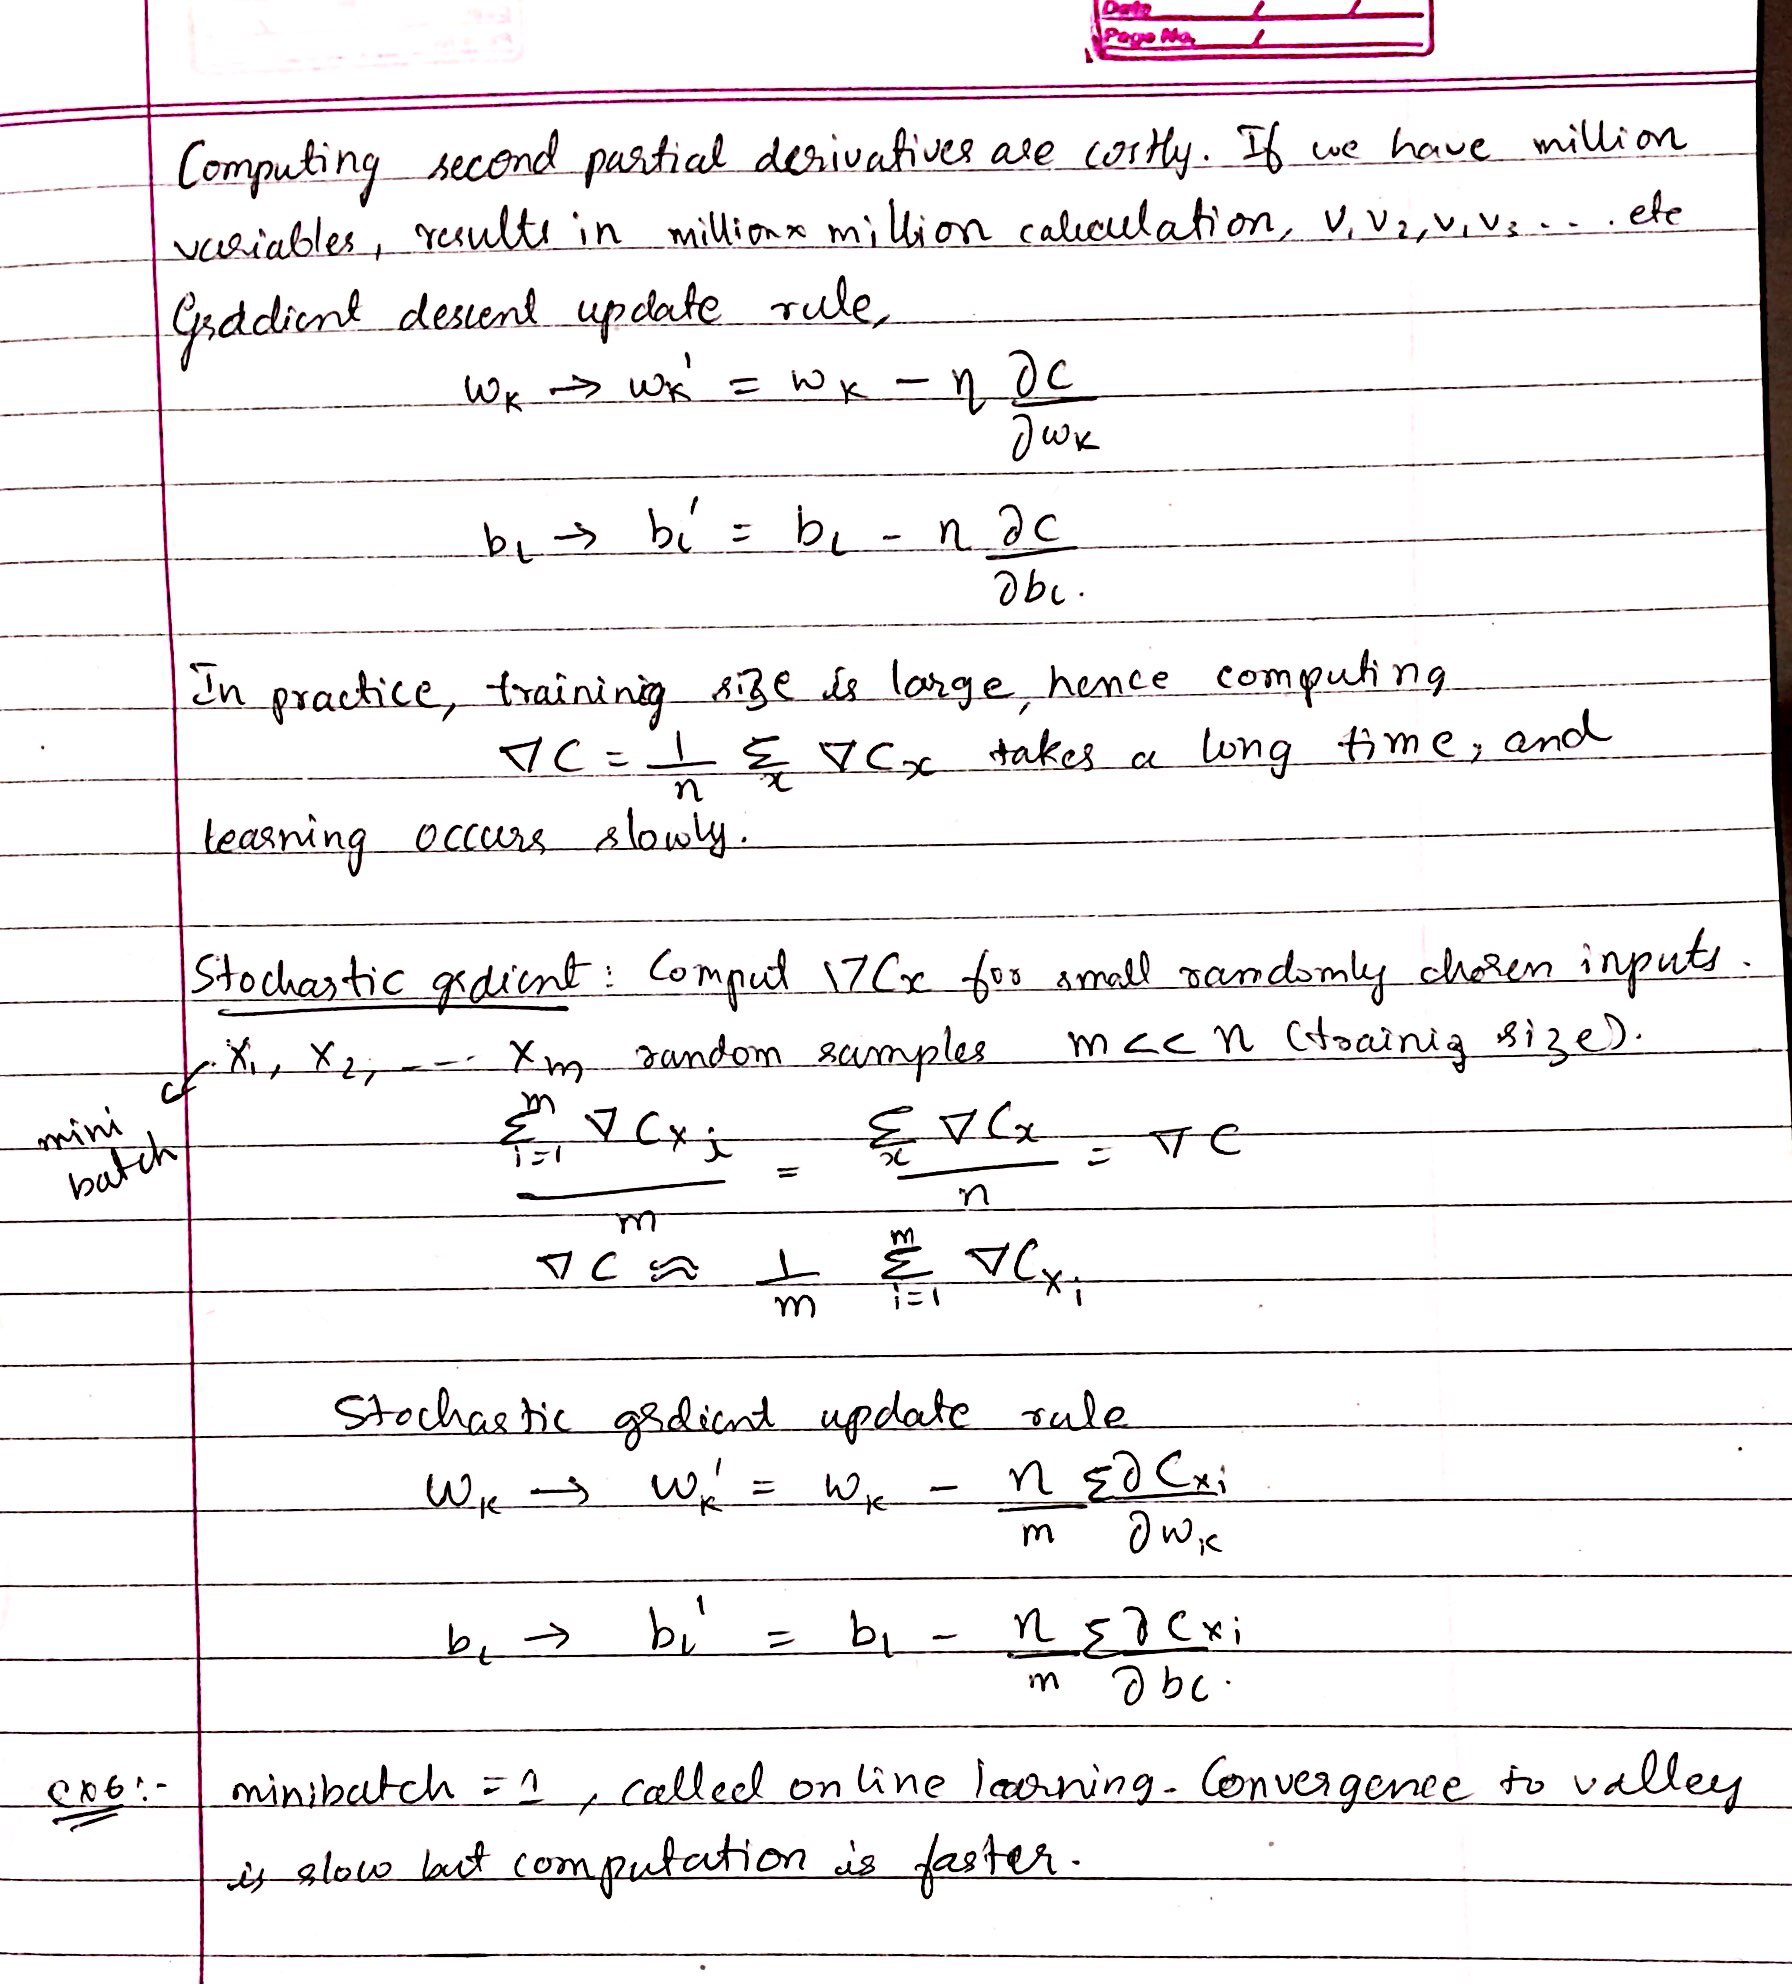 Date / /
Page No. /
Computing second partial derivatives are costly. If we have million
variables, results in million x million calculation, V₁V₂, V₁V₃ .... etc
Gradient descent update rule,
wₖ → wₖ' = wₖ - η ∂C/∂wₖ
bₗ → bₗ' = bₗ - η ∂C/∂bₗ.
In practice, training size is large, hence computing
∇C = 1/n Σₓ ∇Cₓ takes a long time, and
learning occurs slowly.
Stochastic grdient: Comput ∇Cx for small randomly chosen inputs.
X₁, X₂, --- Xm random samples m << n (trainig size).
mini batch
Σᵢ₌₁ᵐ ∇Cxⱼ / m = Σₓ ∇Cx / n = ∇C
∇C ≈ 1/m Σᵢ₌₁ᵐ ∇Cxᵢ
Stochastic grdient update rule
wₖ → wₖ' = wₖ - η/m Σ ∂Cxᵢ/∂wₖ
bₗ → bₗ' = bₗ - η/m Σ ∂Cxᵢ/∂bₗ.
minibatch = 1, called online learning. Convergence to valley
is slow but computation is faster.